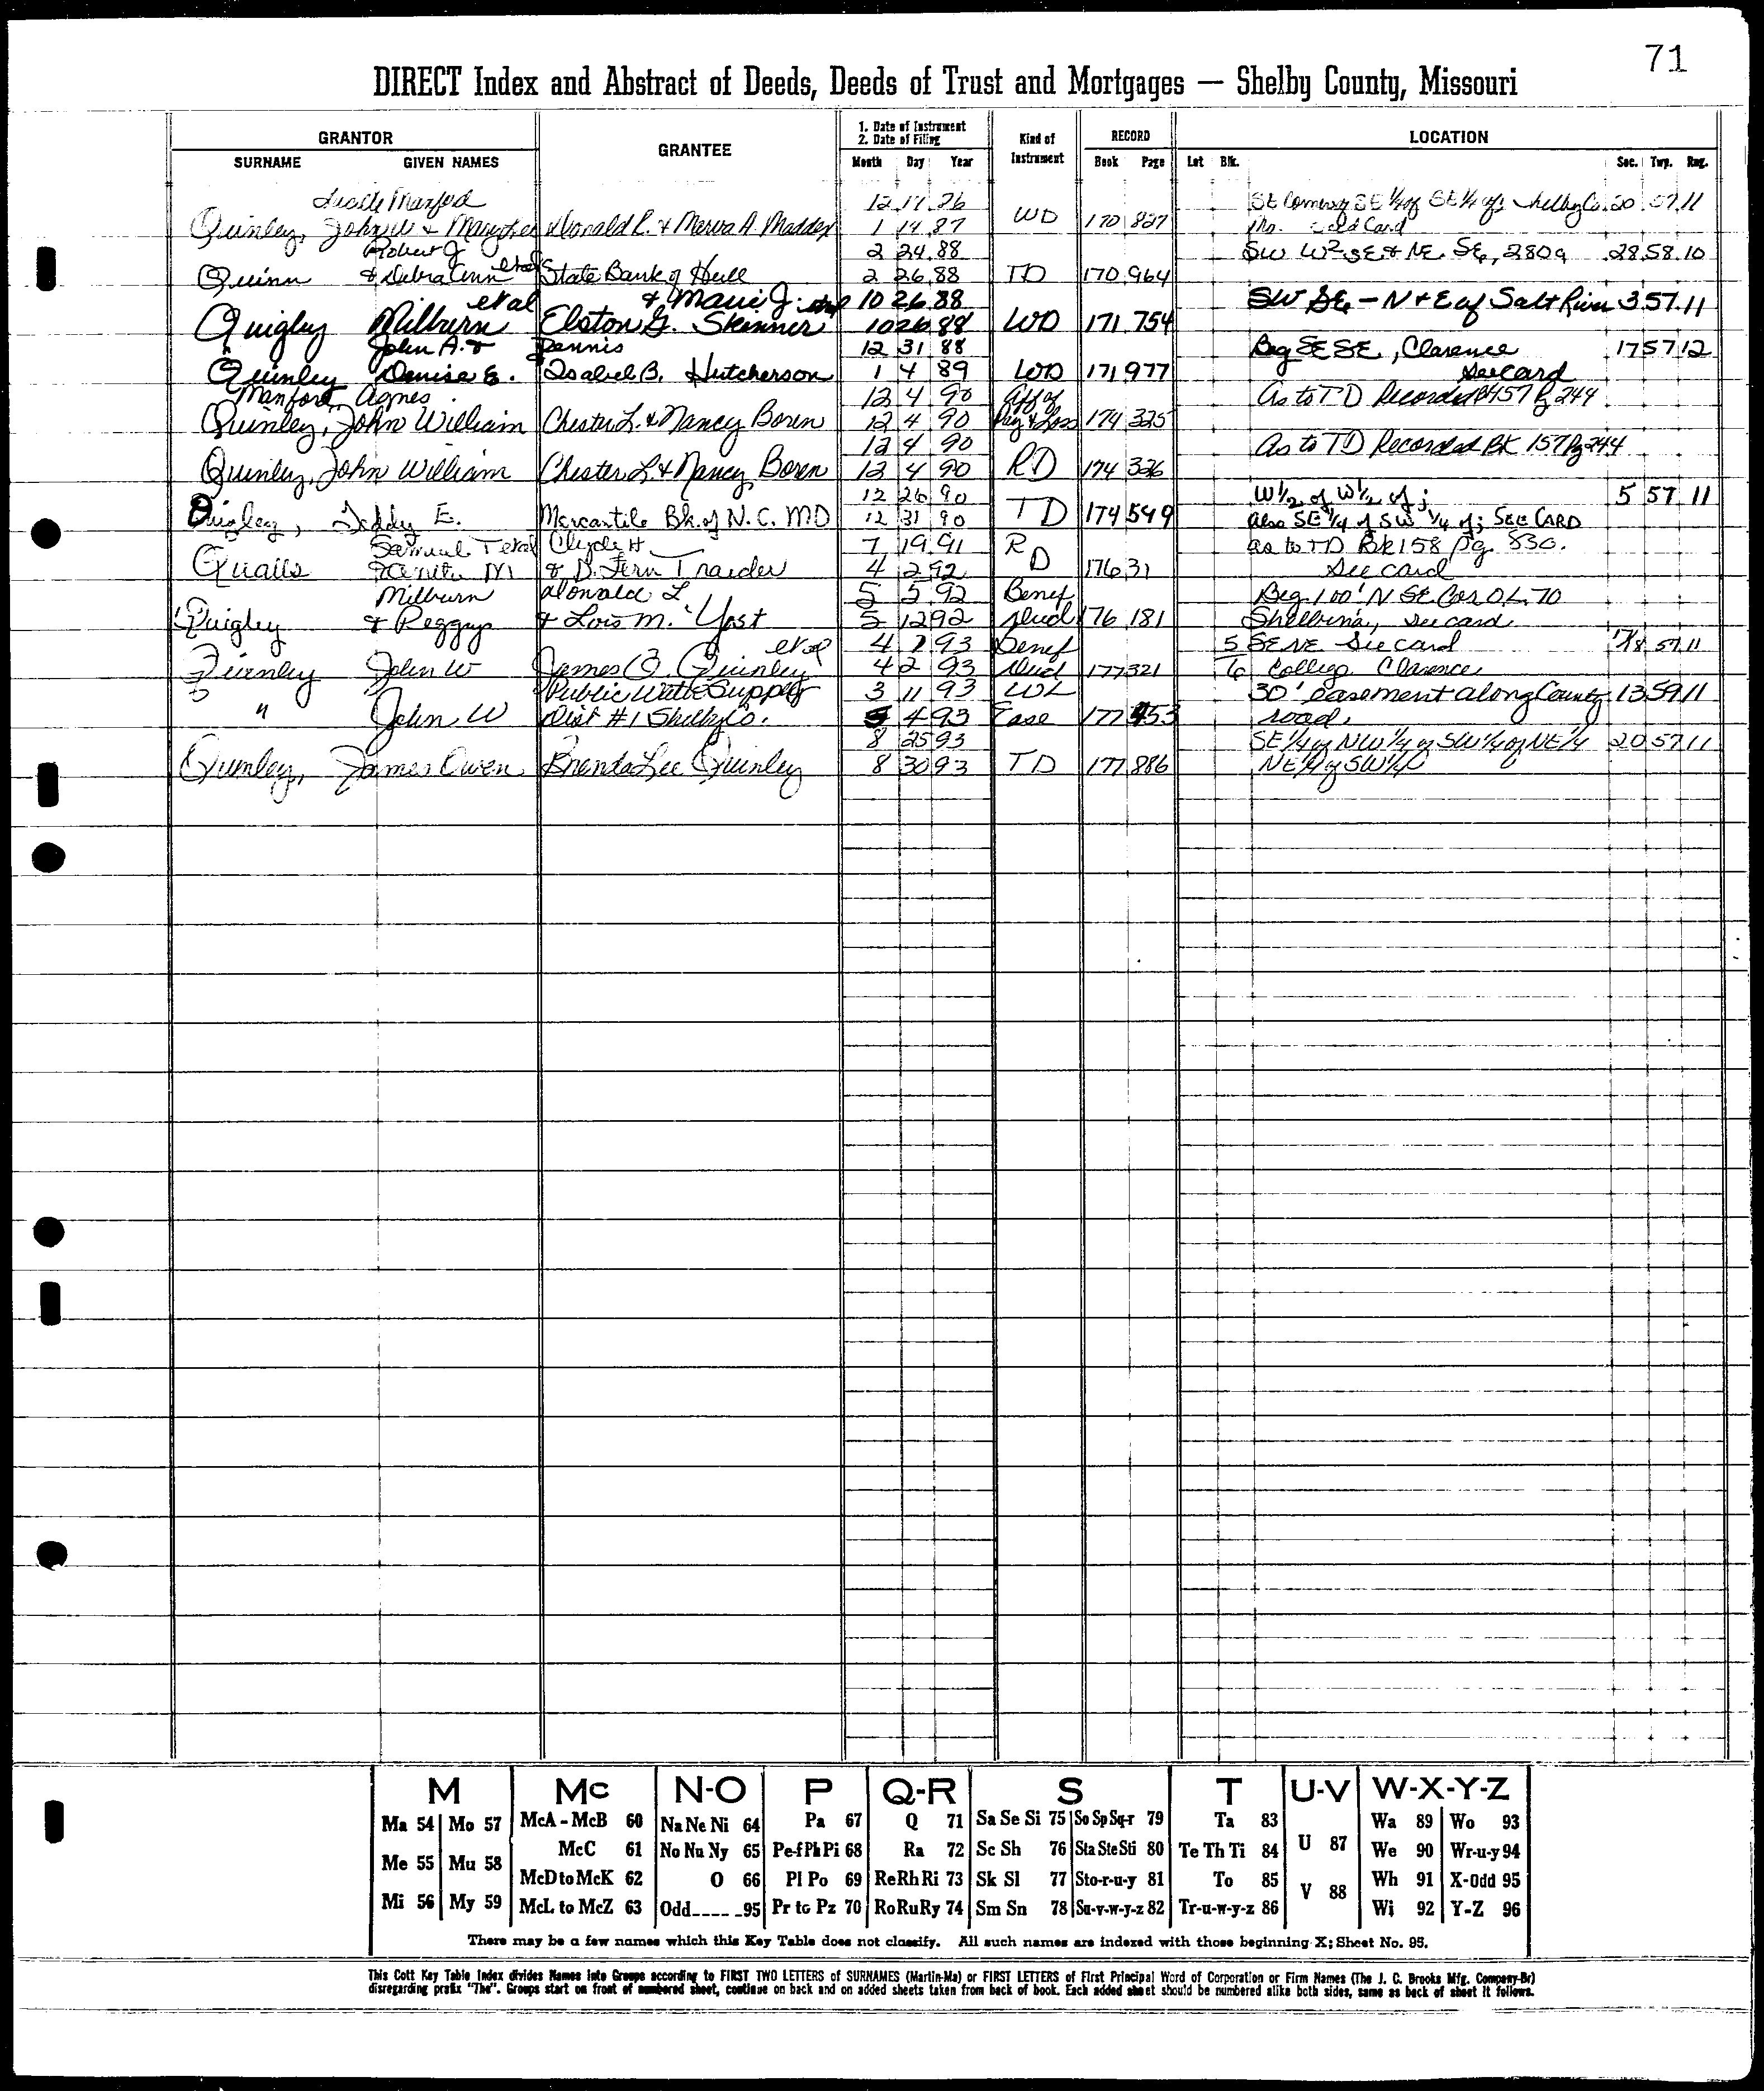 71
DIRECT Index and Abstract of Deeds, Deeds of Trust and Mortgages — Shelby County, Missouri
GRANTOR GRANTEE 1. Date of Instrument 2. Date of Filing Kind of Instrument RECORD LOCATION
SURNAME GIVEN NAMES Month Day Year Book Page Lot Blk. Sec. Twp. Rng.
Manford 12 17 SE 1/4 of SE 1/4 of Shelby Co. 20 57 11
Quinley, John W & Donald L. & Merva A. Maddex 1 14 87 WD 170 827 Mo. Card
Robert J 2 24 88 SW W2 SE & NE SE, 280a 28 58 10
Quinn & Debra Ann etal State Bank of Hull 2 26 88 TD 170 964
etal & Marie J. etal 10 26 88 SW SE - N & E of Salt River 3 57 11
Quigley Milburn Elston G. Skinner 10 26 88 WD 171 754
John A. & Dennis 12 31 88 Beg SE SE, Clarence 17 57 12
Quinley Denise E. Isabel B. Hutcherson 1 4 89 WD 171 977 See card
Manford Agnes 12 4 90 Aff of As to TD Recorded Bk 157 Pg 244
Quinley, John William Chester L. & Nancy Boren 12 4 90 Loss 174 325
12 4 90 As to TD Recorded BK 157 Pg 244
Quinley, John William Chester L & Nancy Boren 12 4 90 RD 174 326
12 26 90 W 1/2 of W 1/2 of; 5 57 11
Quigley, Teddy E. Mercantile Bk. of N. C. MO 12 31 90 TD 174 549 also SE 1/4 of SW 1/4 of; SEE CARD
Samuel T etal Clyde H 7 19 91 R as to TD Bk 158 pg. 830.
Qualls M & D. Fern Traeder 4 2 92 D 176 31 See card
Milburn Donald L 5 5 92 Benef Beg 100' N SE Cor OL 70
Quigley & Peggy & Lois M. Yost 5 12 92 Deed 176 181 Shelbina, see card
etal 4 93 Benef 5 SE NE See card 57 11
Quinley John W James O. Quinley 4 2 93 Deed 177 321 6 College Clarence
Public Water Supply 3 11 93 30' easement along County 13 59 11
" John W Dist #1 Shelby Co. 4 93 Ease 177 453 road.
8 25 93 SE 1/4 of NW 1/4 of SW 1/4 of NE 1/4 20 57 11
Quinley, James Owen Brenda Lee Quinley 8 30 93 TD 177 886 NE 1/4 of SW 1/4
M Mc N-O P Q-R S T U-V W-X-Y-Z
Ma 54 Mo 57 McA - McB 60 Na Ne Ni 64 Pa 67 Q 71 Sa Se Si 75 So Sp Sq-r 79 Ta 83 Wa 89 Wo 93
McC 61 No Nu Ny 65 Pe-f Ph Pi 68 Ra 72 Sc Sh 76 Sta Ste Sti 80 Te Th Ti 84 U 87 We 90 Wr-u-y 94
Me 55 Mu 58 McD to McK 62 O 66 Pl Po 69 Re Rh Ri 73 Sk Sl 77 Sto-r-u-y 81 To 85 V 88 Wh 91 X-Odd 95
Mi 56 My 59 McL to McZ 63 Odd---- -95 Pr to Pz 70 Ro Ru Ry 74 Sm Sn 78 Su-v-w-y-z 82 Tr-u-w-y-z 86 Wi 92 Y-Z 96
There may be a few names which this Key Table does not classify. All such names are indexed with those beginning X; Sheet No. 95.
This Cott Key Table Index divides Names into Groups according to FIRST TWO LETTERS of SURNAMES (Martin-Ma) or FIRST LETTERS of First Principal Word of Corporation or Firm Names (The J. C. Brooks Mfg. Company-Br)
disregarding prefix "The". Groups start on front of numbered sheet, continue on back and on added sheets taken from back of book. Each added sheet should be numbered alike both sides, same as back of sheet it follows.